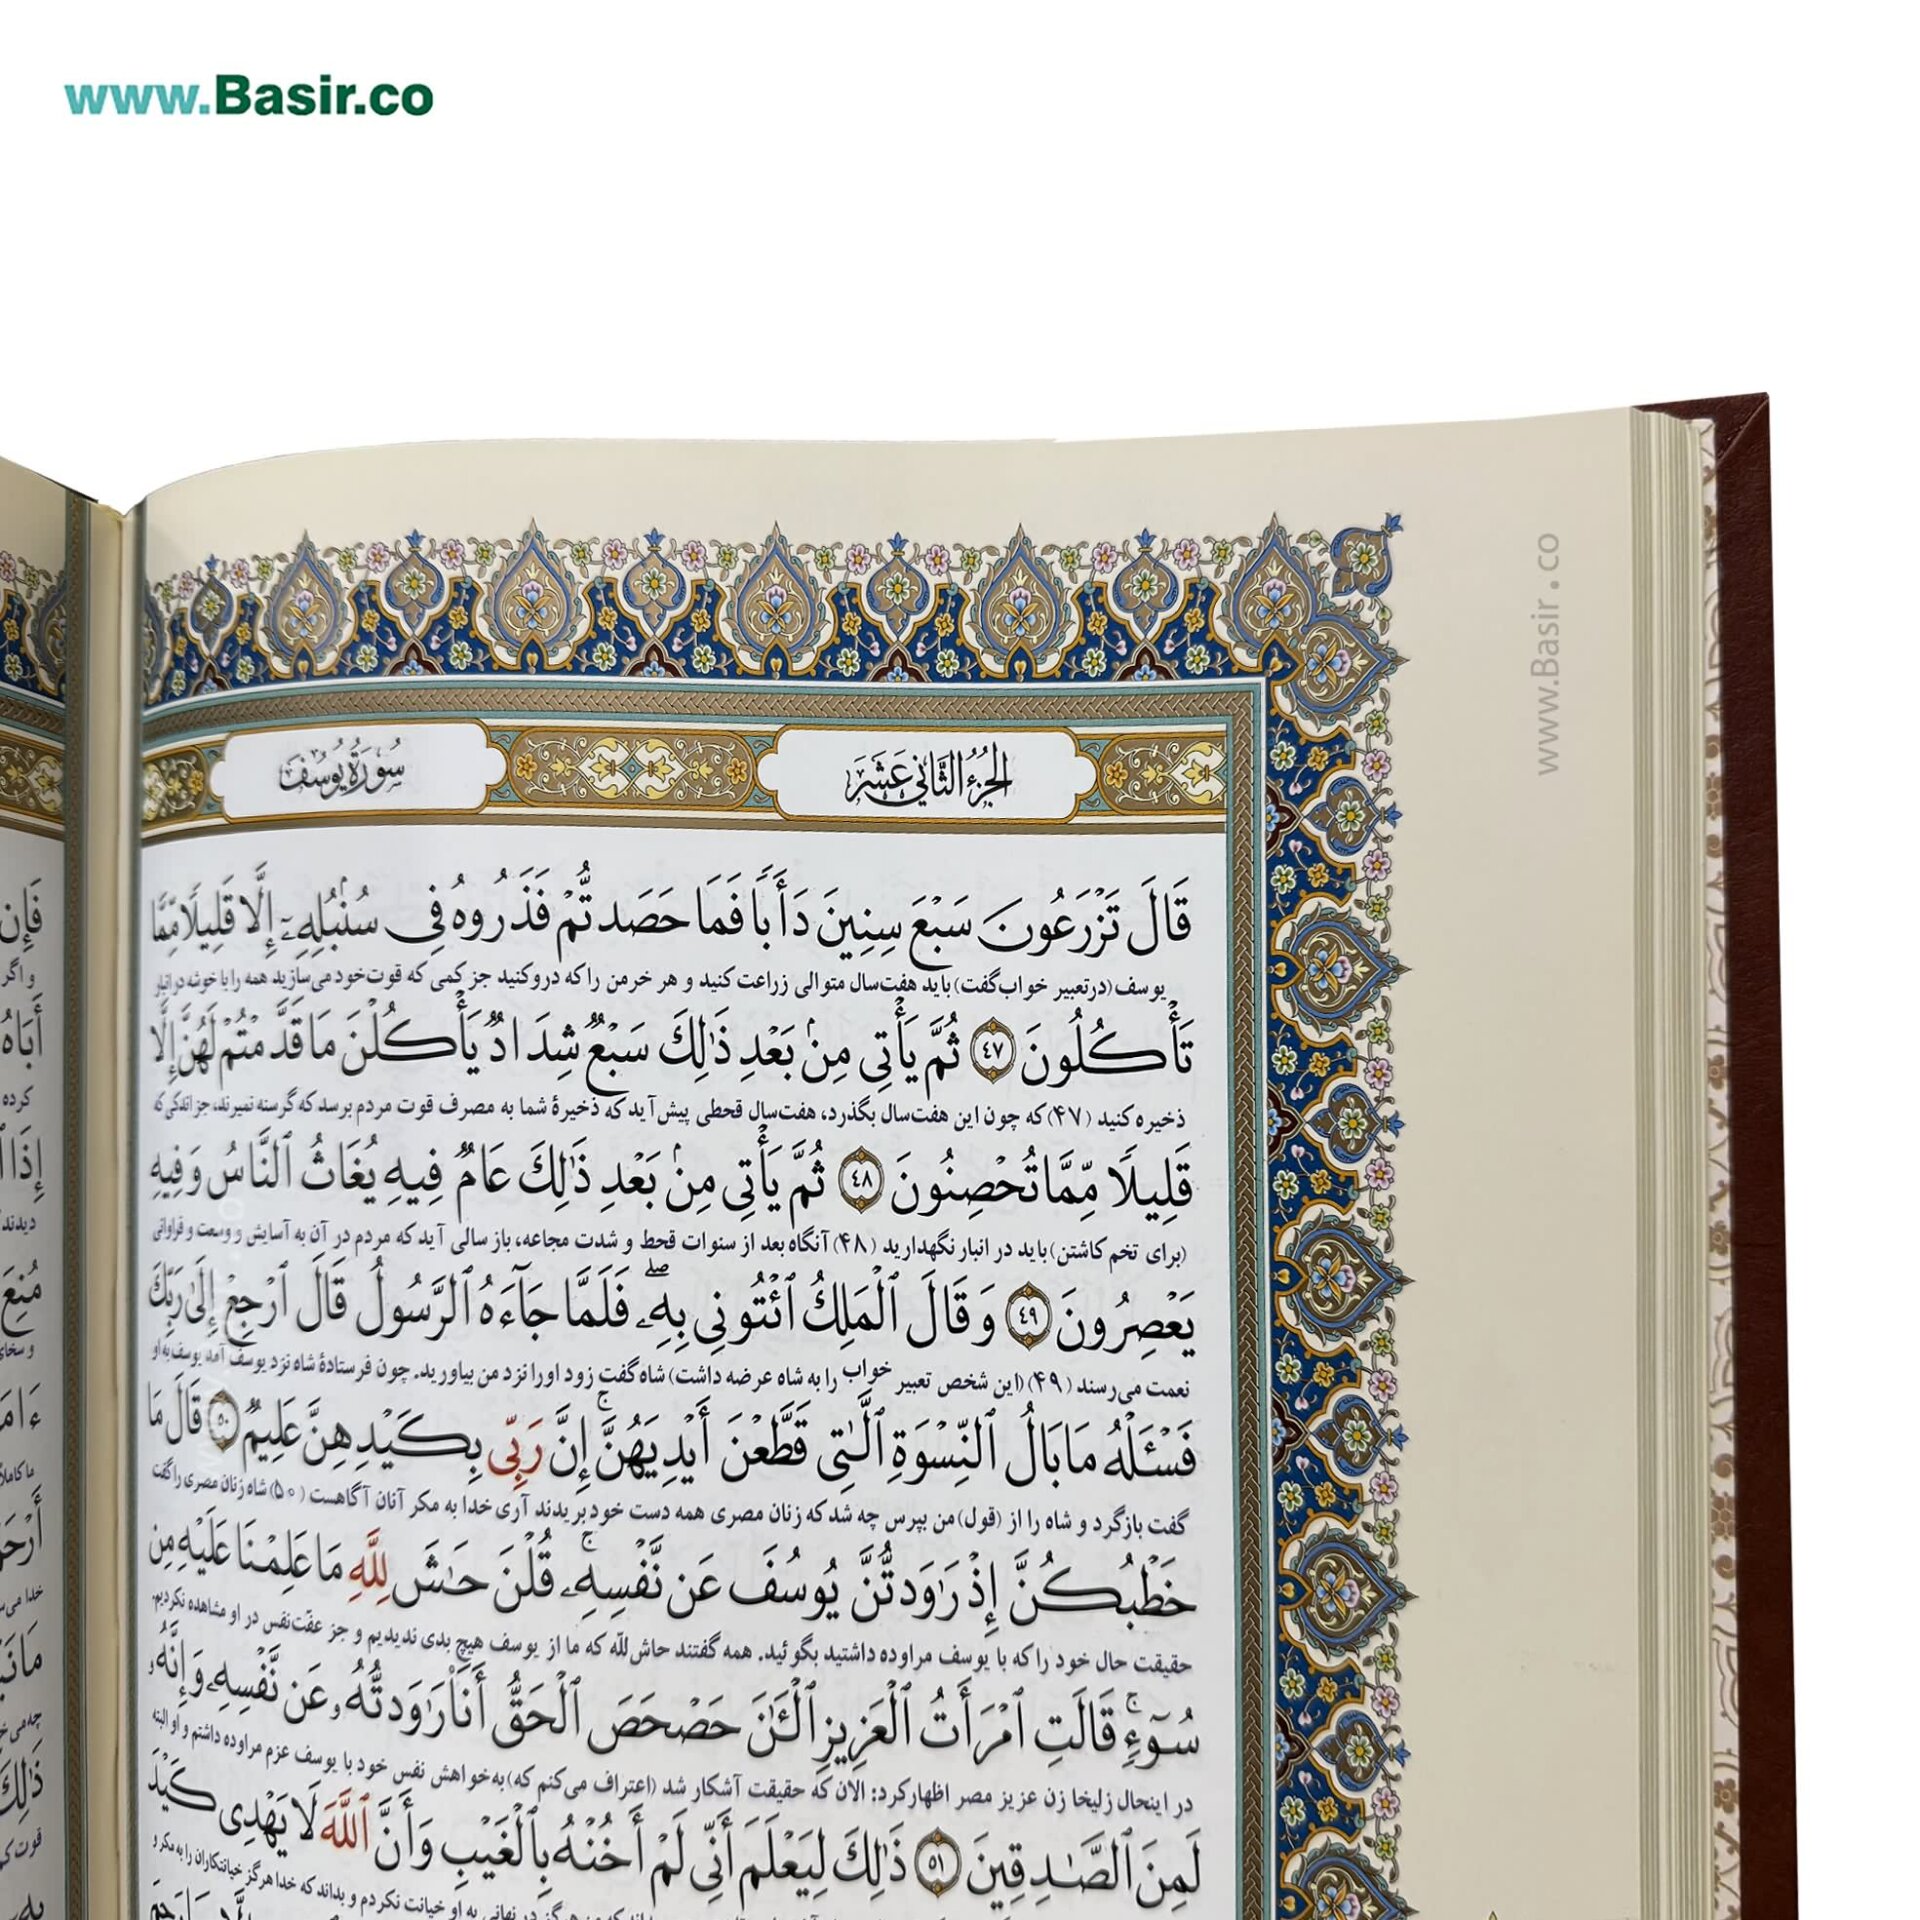 www.Basir.co
www.Basir.co
الجُزءُ الثَّانِي عَشَرَ
سُورَةُ يُوسُفَ
قَالَ تَزْرَعُونَ سَبْعَ سِنِينَ دَأَبًا فَمَا حَصَدتُّمْ فَذَرُوهُ فِي سُنۢبُلِهِۦٓ إِلَّا قَلِيلًا مِّمَّا
یوسف(درتعبیر خواب‌گفت)باید هفت‌سال متوالی زراعت کنید و هر خرمن را که درو کنید جز کمی که قوت خود می‌سازید همه را با خوشه در انبار
تَأْكُلُونَ ﴿٤٧﴾ ثُمَّ يَأْتِي مِنۢ بَعْدِ ذَٰلِكَ سَبْعٌ شِدَادٌ يَأْكُلْنَ مَا قَدَّمْتُمْ لَهُنَّ إِلَّا
ذخیره کنید (۴۷) که چون این هفت‌سال بگذرد، هفت‌سال قحطی پیش آید که ذخیرهٔ شما به مصرف قوت مردم برسد که گرسنه نمیرند، جز اندکی که
قَلِيلًا مِّمَّا تُحْصِنُونَ ﴿٤٨﴾ ثُمَّ يَأْتِي مِنۢ بَعْدِ ذَٰلِكَ عَامٌ فِيهِ يُغَاثُ ٱلنَّاسُ وَفِيهِ
(برای تخم کاشتن) باید در انبار نگهدارید (۴۸) آنگاه بعد از سنوات قحط و شدت مجاعه، باز سالی آید که مردم در آن به آسایش و وسعت و فراوانی
يَعْصِرُونَ ﴿٤٩﴾ وَقَالَ ٱلْمَلِكُ ٱئْتُونِي بِهِۦۖ فَلَمَّا جَآءَهُ ٱلرَّسُولُ قَالَ ٱرْجِعْ إِلَىٰ رَبِّكَ
نعمت می‌رسند (۴۹) (این شخص تعبیر خواب را به شاه عرضه داشت) شاه گفت زود او را نزد من بیاورید. چون فرستادهٔ شاه نزد یوسف آمد یوسف به او
فَسْـَٔلْهُ مَا بَالُ ٱلنِّسْوَةِ ٱلَّـٰتِي قَطَّعْنَ أَيْدِيَهُنَّۚ إِنَّ رَبِّي بِكَيْدِهِنَّ عَلِيمٌ ﴿٥٠﴾ قَالَ مَا
گفت بازگرد و شاه را از (قول) من بپرس چه شد که زنان مصری همه دست خود بریدند آری خدا به مکر آنان آگاهست (۵۰) شاه زنان مصری را گفت
خَطْبُكُنَّ إِذْ رَٰوَدتُّنَّ يُوسُفَ عَن نَّفْسِهِۦۚ قُلْنَ حَـٰشَ لِلَّهِ مَا عَلِمْنَا عَلَيْهِ مِن
حقیقت حال خود را که با یوسف مراوده داشتید بگوئید. همه گفتند حاش‌للّه که ما از یوسف هیچ بدی ندیدیم و جز عفّت‌نفس در او مشاهده نکردیم.
سُوٓءٍۚ قَالَتِ ٱمْرَأَتُ ٱلْعَزِيزِ ٱلْـَٔـٰنَ حَصْحَصَ ٱلْحَقُّ أَنَا رَٰوَدتُّهُۥ عَن نَّفْسِهِۦ وَإِنَّهُۥ
در اینحال زلیخا زن عزیز مصر اظهار کرد: الان که حقیقت آشکار شد (اعتراف می‌کنم که) به‌خواهش نفس خود با یوسف عزم مراوده داشتم و او البته
لَمِنَ ٱلصَّـٰدِقِينَ ﴿٥١﴾ ذَٰلِكَ لِيَعْلَمَ أَنِّي لَمْ أَخُنْهُ بِٱلْغَيْبِ وَأَنَّ ٱللَّهَ لَا يَهْدِي كَيْدَ
در نهانی به او خیانت نکردم و بداند که خدا هرگز خیانتکاران را به مکر و
فَإِن
و اگر
أَبَاهُ
کرده
إِذَا
دیدند
مُنِعَ